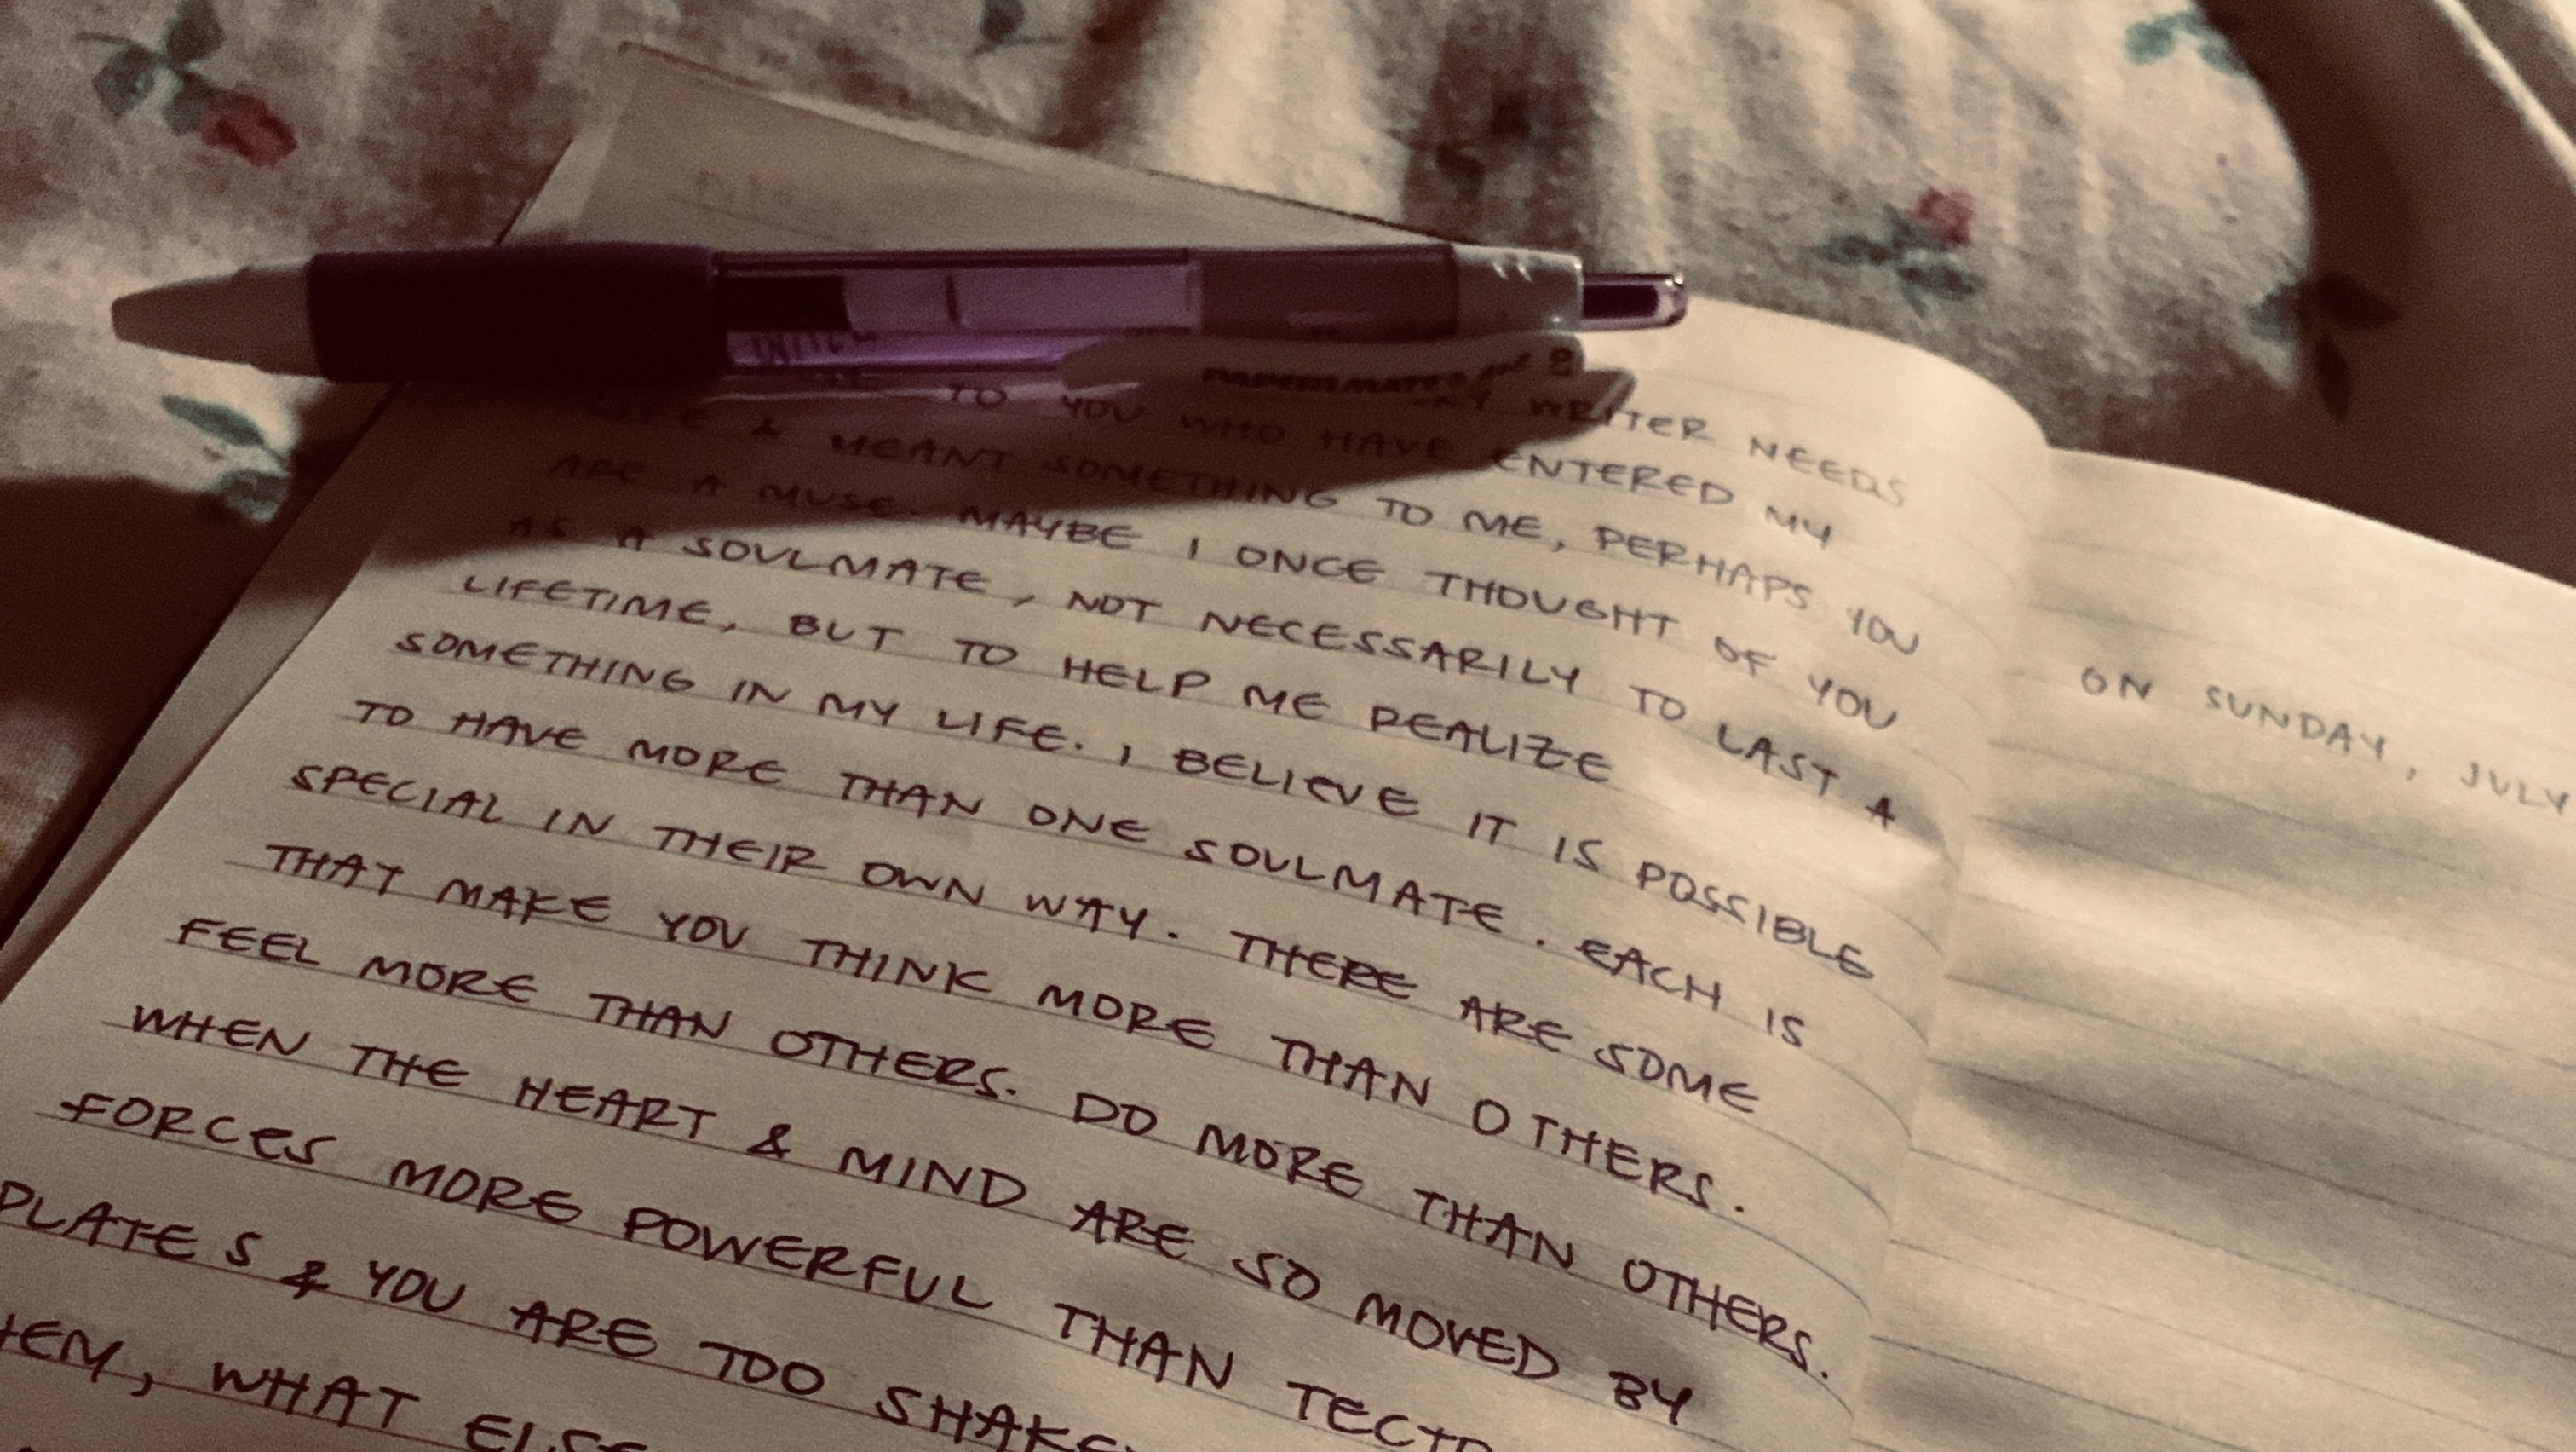 WRITER NEEDS
TO YOU WHO HAVE ENTERED MY
LIFE & MEANT SOMETHING TO ME, PERHAPS YOU
ARE A MUSE. MAYBE I ONCE THOUGHT OF YOU
AS A SOULMATE, NOT NECESSARILY TO LAST A
LIFETIME, BUT TO HELP ME REALIZE
SOMETHING IN MY LIFE. I BELIEVE IT IS POSSIBLE
TO HAVE MORE THAN ONE SOULMATE. EACH IS
SPECIAL IN THEIR OWN WAY. THERE ARE SOME
THAT MAKE YOU THINK MORE THAN OTHERS.
FEEL MORE THAN OTHERS. DO MORE THAN OTHERS.
WHEN THE HEART & MIND ARE SO MOVED BY
FORCES MORE POWERFUL THAN TECTO
PLATES & YOU ARE TOO SHAKE
HEM, WHAT ELSE
ON SUNDAY, JULY
PAPERMATE gel